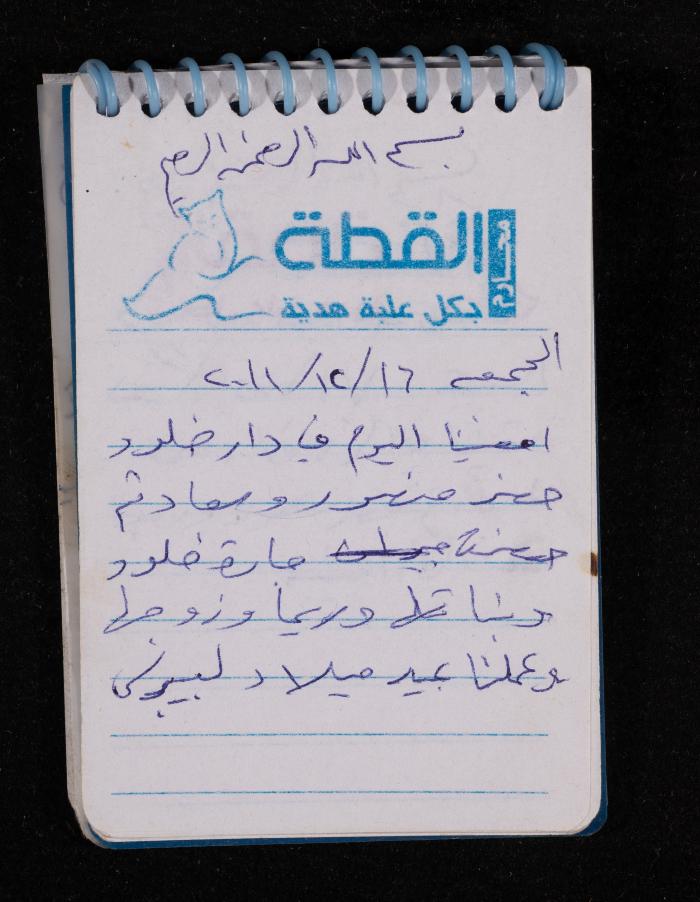 بسم الله الرحمن الرحيم
محارم
القطة
بكل علبة هدية
الجمعه ١٦/١٢/٢٠١١
امضينا اليوم في دار خلود
حضر منصور وسعاد ثم
حضرت جارة خلود
وبناتها وريما وزوجها
وعملنا عيد ميلاد